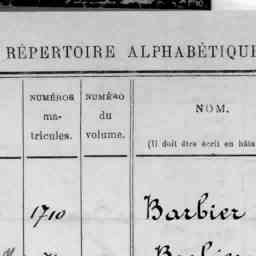 RÉPERTOIRE ALPHABÉTIQUE
NUMÉROS
ma-
tricules.
NUMÉRO
du
volume.
NOM.
(Il doit être écrit en bâta
1710
Barbier